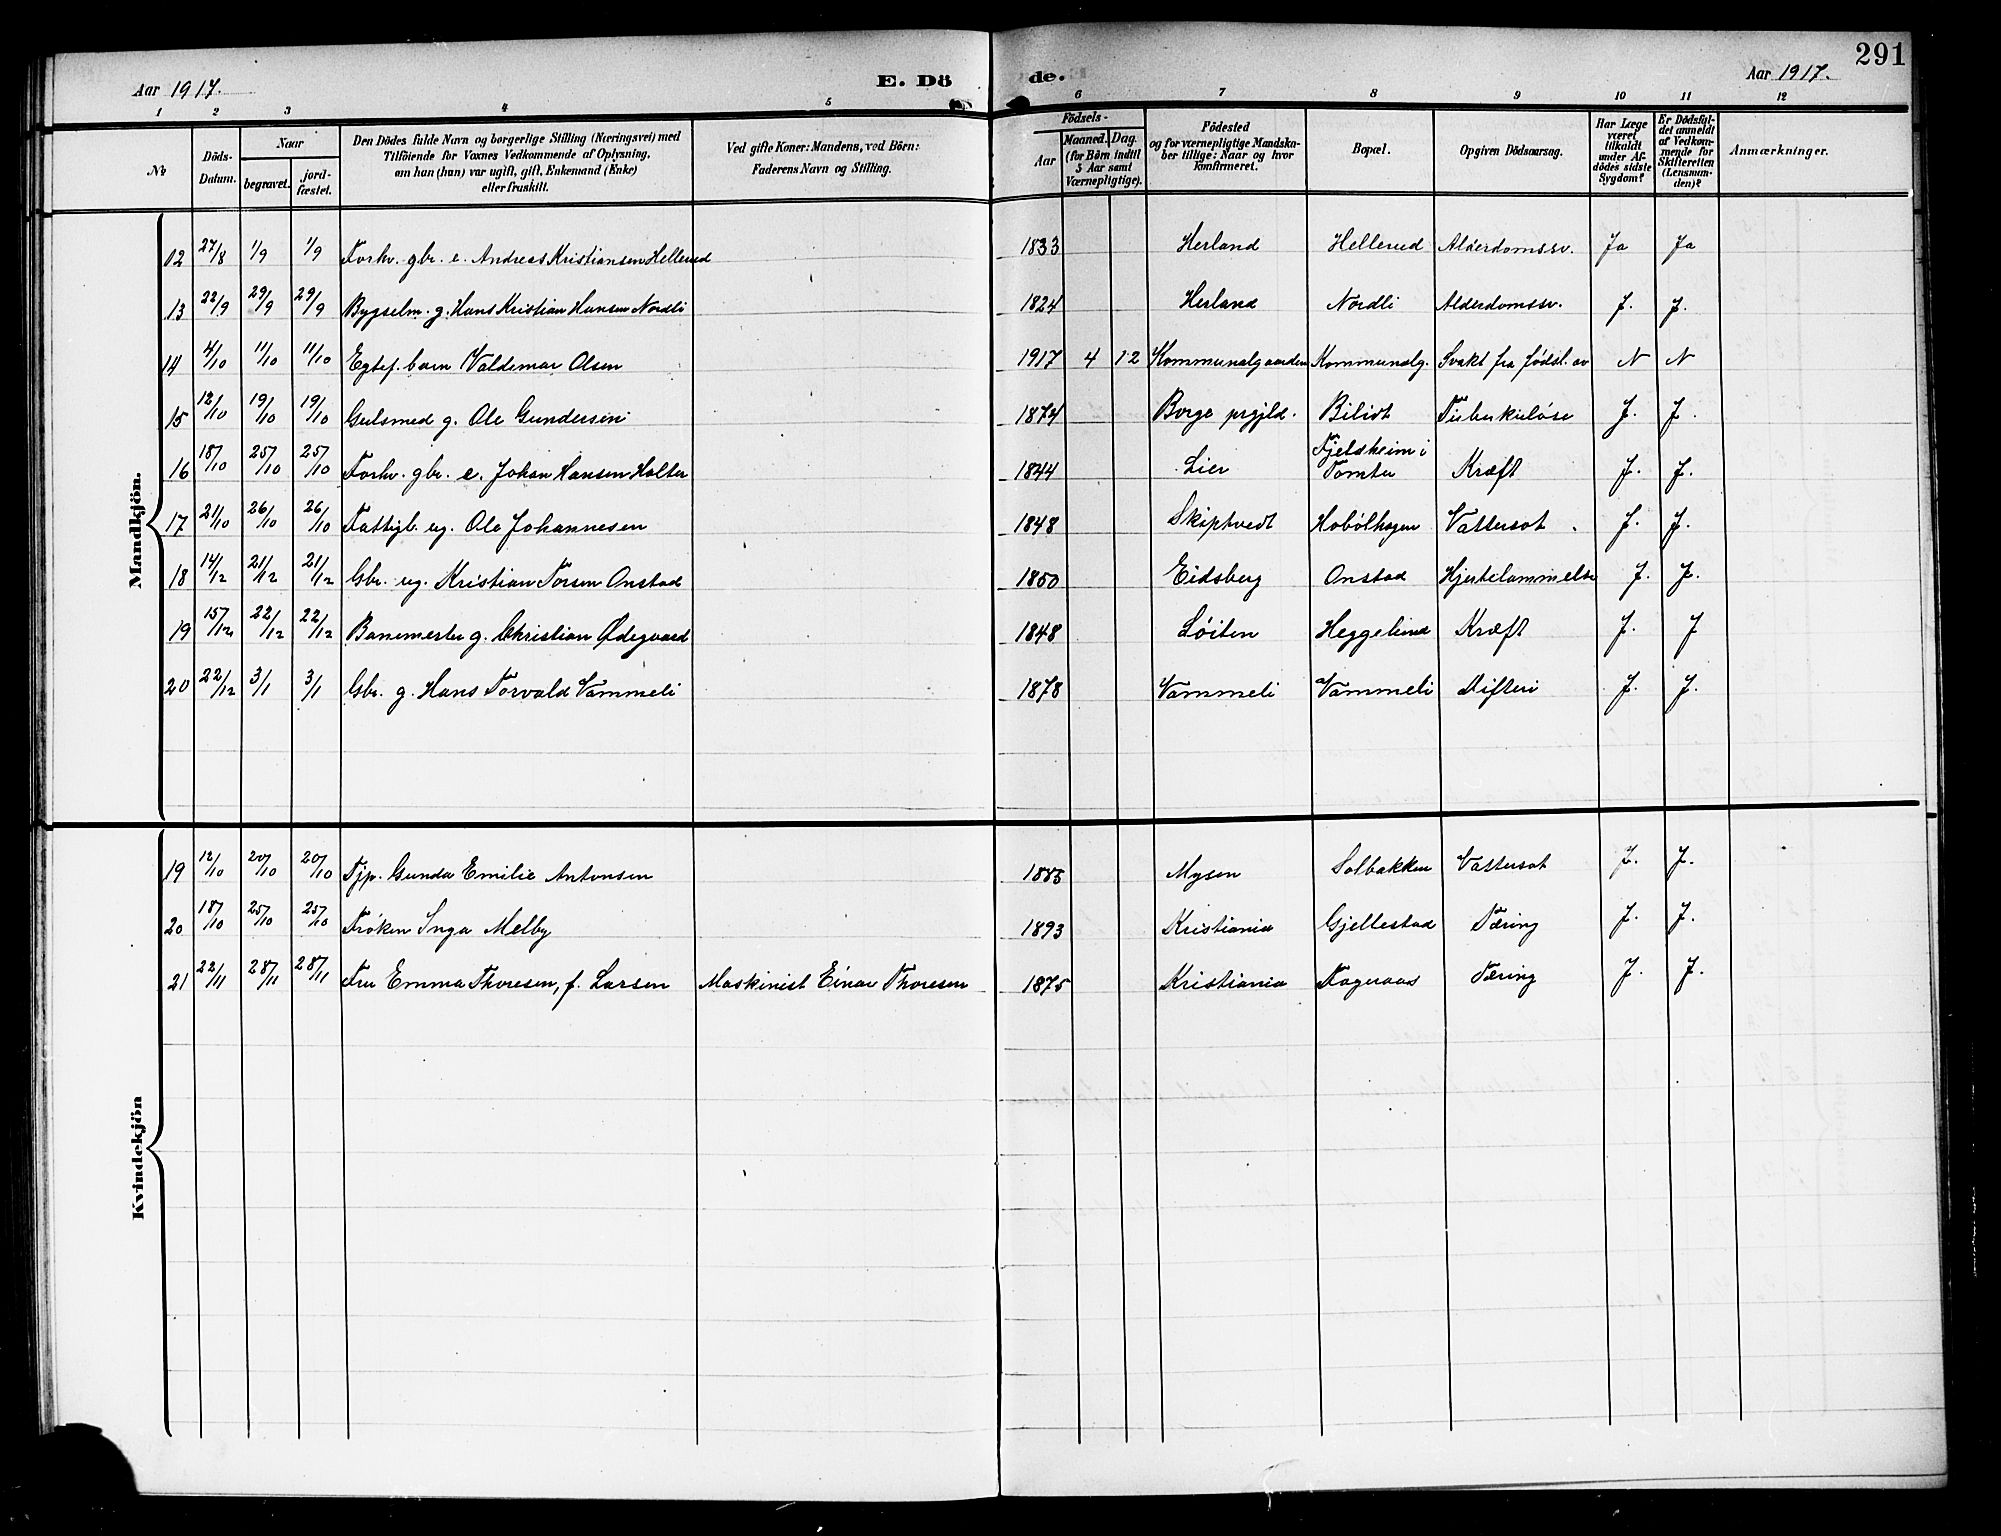 291
Aar 1917. E. Dö de. Aar 1917.
1 2 3 4 5 6 7 8 9 10 11 12
No
Döds-Datum.
Naar
begravet.
jord-fæstet.
Den Dödes fulde Navn og borgerlige Stilling (Næringsvei) med
Tilföiende for Voxnes Vedkommende af Oplysning,
om han (hun) var ugift, gift, Enkemand (Enke)
eller fraskilt.
Ved gifte Koner: Mandens, ved Börn:
Faderens Navn og Stilling.
Födsels-
Aar
Maaned. Dag.
(for Börn indtil
5 Aar samt
Værnepligtige).
Födested
og for værnepligtige Mandska-
ber tillige: Naar og hvor
konfirmeret.
Bopæl.
Opgiven Dödsaarsag.
Har Læge
været
tilkaldt
under Af-
dödes sidste
Sygdom?
Er Dödsfal-
det anmeldt
af Vedkom-
mende for
Skifteretten
(Lensman-
den)?
Anmærkninger.
Mandkjön.
12 27/8 1/9 1/9 Forhv. gbr. e. Andreas Kristiansen Hellerud 1833 Herland Hellerud Alderdomssv. Ja Ja
13 22/9 29/9 29/9 Bygselm. g. Hans Kristian Hansen Nordli 1824 Herland Nordli Alderdomssv. J. J.
14 4/10 11/10 11/10 Egtef. barn Valdemar Olsen 1917 4 12 Kommunalgaarden Kommunalg. Svakt fra fødsl. av N N
15 12/10 19/10 19/10 Gulsmed g. Ole Gundersen 1874 Borge prgjld. Bilidt Tuberkuløse J. J.
16 18/10 25/10 25/10 Forhv. gbr. e. Johan Hansen Holter 1844 Lier Fjeldheim i Tomter Kræft J. J.
17 21/10 26/10 26/10 Fattigl. ug. Ole Johannesen 1848 Skiptvedt Hobølhagen Vattersot J. J.
18 14/12 21/12 21/12 Gbr. ug. Kristian Torsen Onstad 1850 Eidsberg Onstad Hjertelammelse J. J.
19 15/12 22/12 22/12 Banemester g. Christian Ødegaard 1848 Løiten Heggelund Kræft J. J
20 22/12 3/1 3/1 Gbr. g. Hans Torvald Vammeli 1878 Vammeli Vammeli Difteri J. J.
Kvindekjön
19 12/10 20/10 20/10 Tjp. Gunda Emilie Antonsen 1885 Mysen Solbakken Vattersot J. J.
20 18/10 25/10 25/10 Frøken Inga Melby 1893 Kristiania Gjellestad Tæring J. J.
21 22/11 28/11 28/11 Fru Emma Thoresen, f. Larsen Maskinist Einar Thoresen 1875 Kristiania Fageraas Tæring J. J.